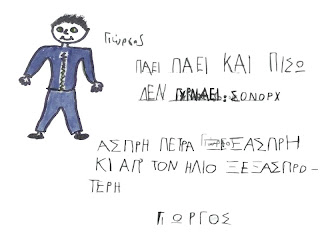 Γιώργος
ΠΑΕΙ ΠΑΕΙ ΚΑΙ ΠΙΣΩ
ΔΕΝ ΓΥΡΝΑΕΙ:
ΑΣΠΡΗ ΠΕΤΡΑ ΞΕΞΑΣΠΡΗ
ΚΙ ΑΠ ΤΟΝ ΗΛΙΟ ΞΕΞΑΣΠΡΟ-
ΤΕΡΗ
ΓΙΩΡΓΟΣ